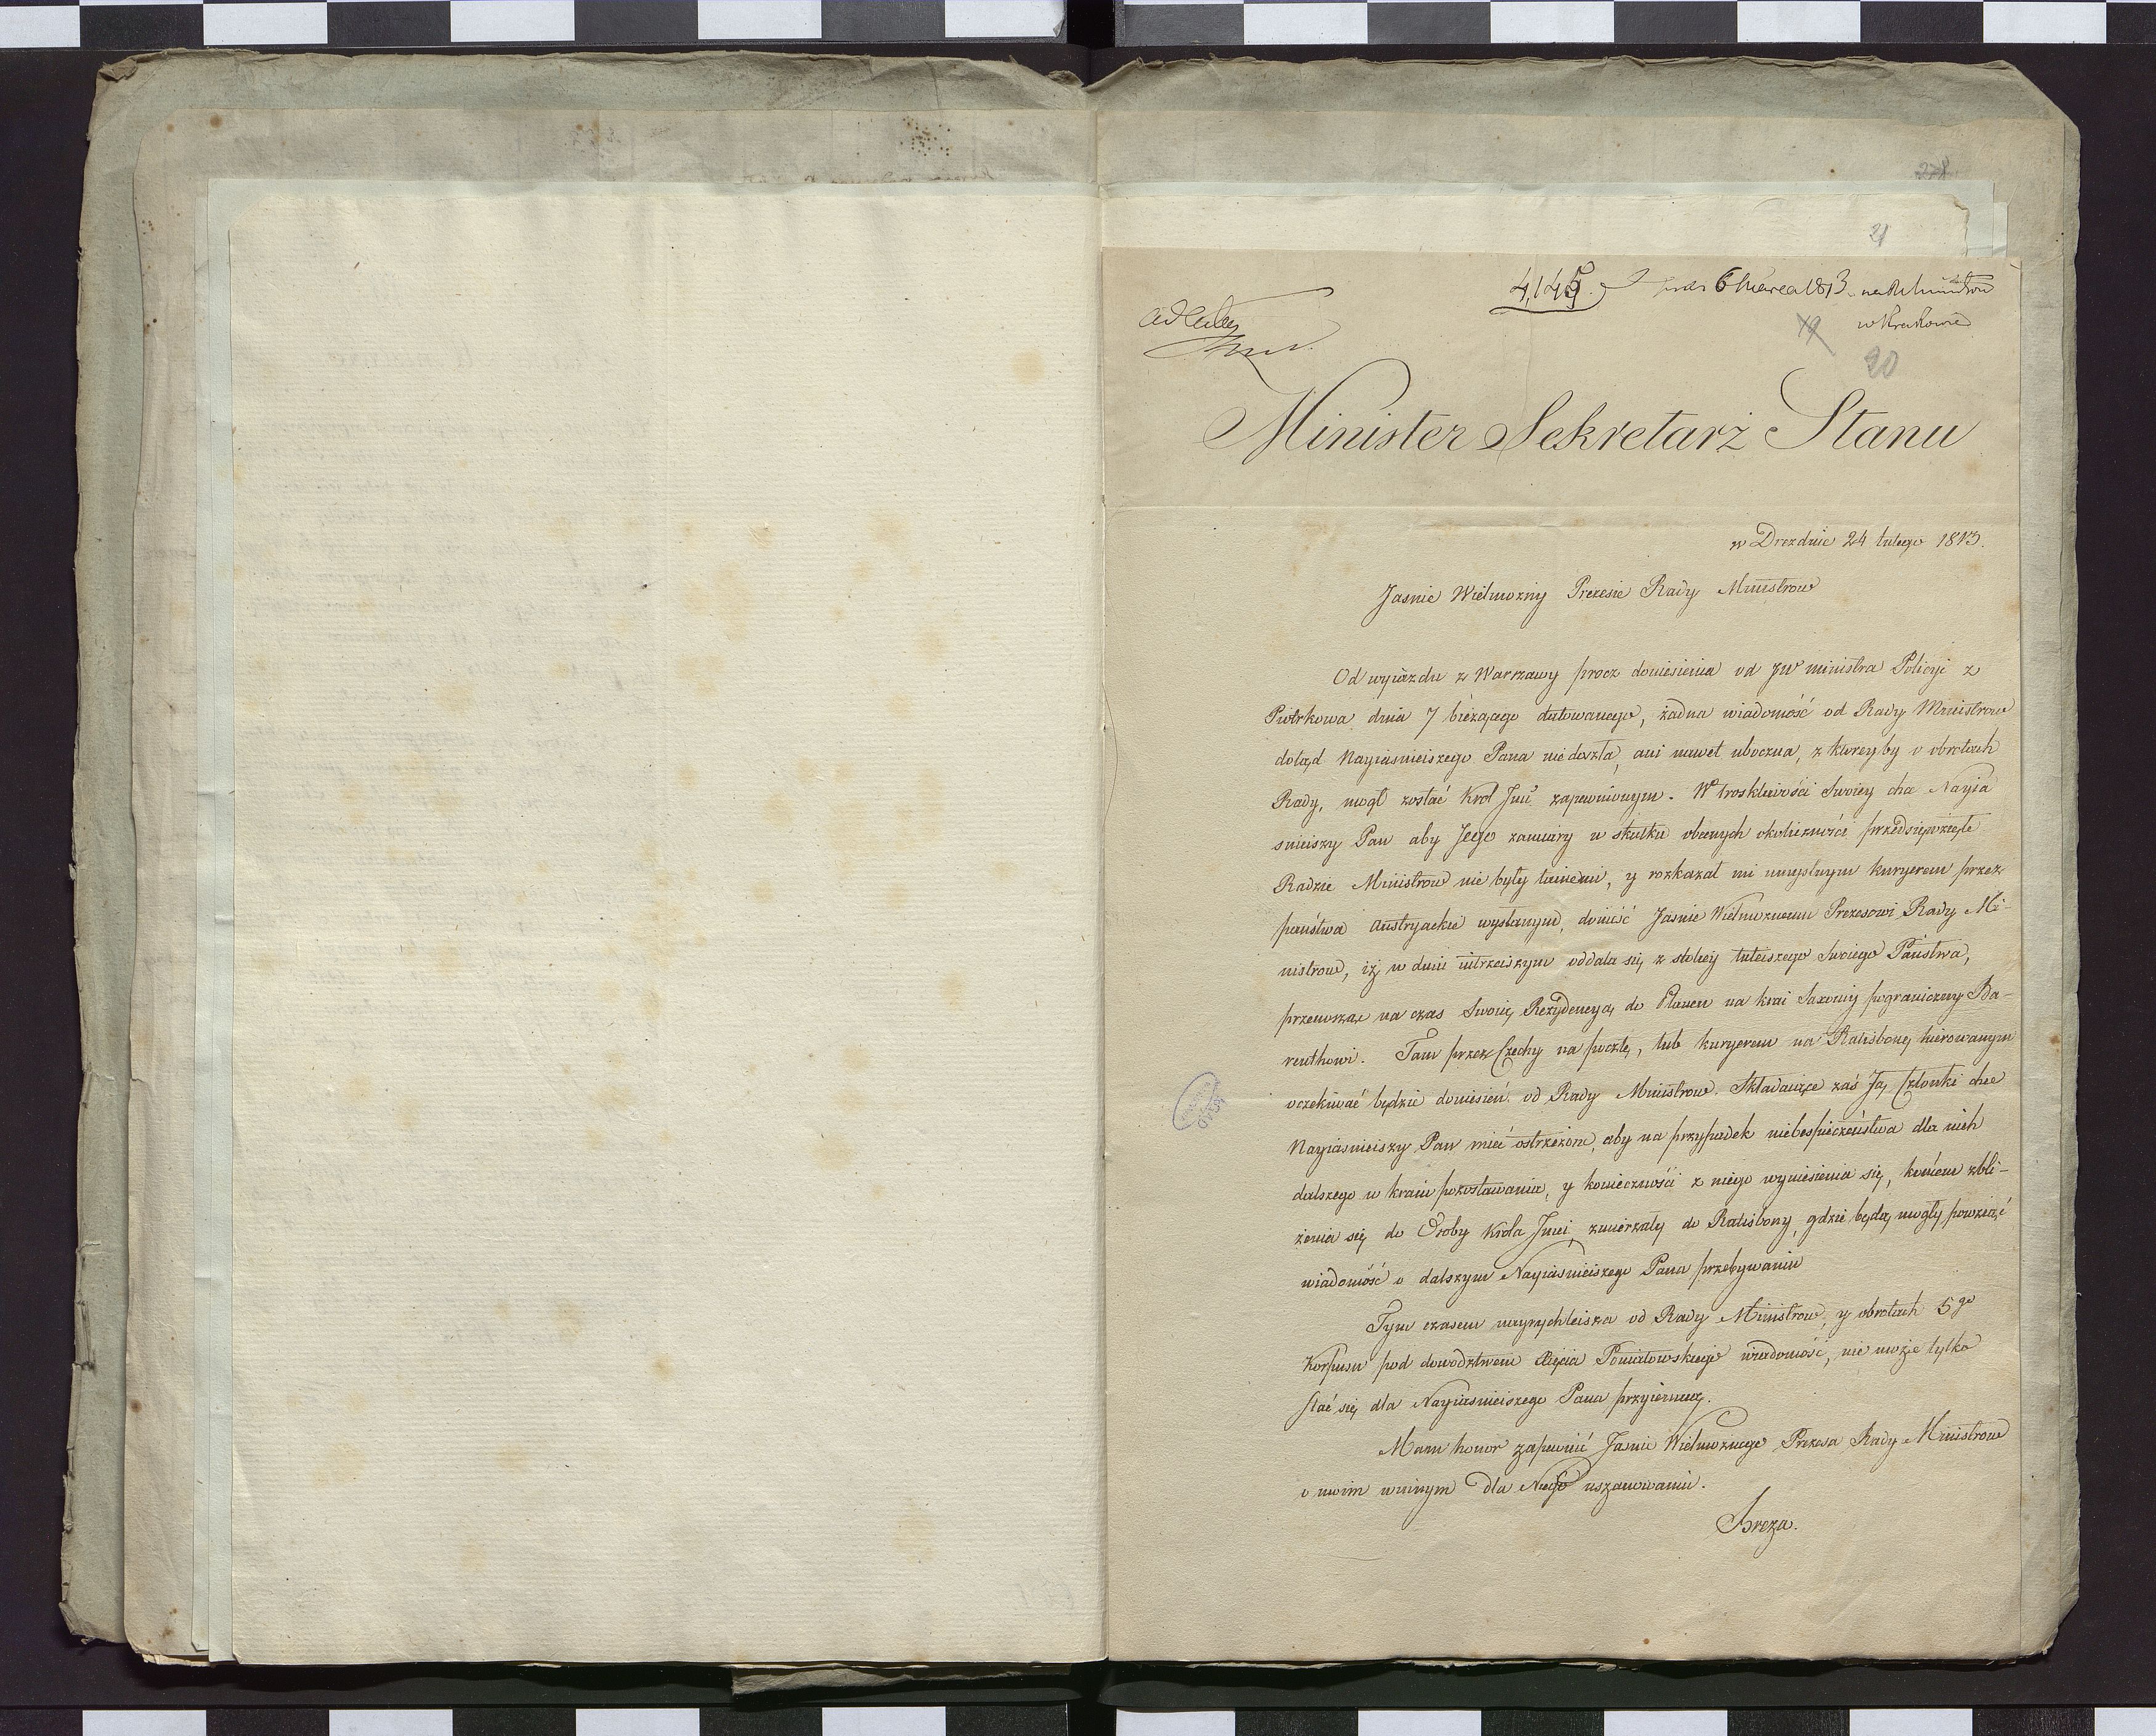 278
21
4,145. prez 6 Marca 1813 na R Ministrow
ad acta w Krakowie
19
20
Minister Sekretarz Stanu
w Dreznie 24 lutego 1813.
Jasnie Wielmożny Prezesie Rady Ministrow
Od wyiazdu z Warszawy procz doniesienia od JW ministra Policyi z
Piotrkowa dnia 7 bieżącego datowanego, żadna wiadomość od Rady Ministrow
dotąd Nayiasnieiszego Pana niedoszła, ani nawet uboczna, z ktoreyby o obrotach
Rady, mogł zostać Krol Jmć zapewnionym. W troskliwości Swoiey chce Nayia
snieiszy Pan aby Jego zamiary w skutku obecnych okoliczności przedsięwzięte
Radzie Ministrow nie były tainemi, y rozkazał mi umyslnym kuryerem przez
państwa Austryackie wysłanym, donieść Jasnie Wielmożnemu Prezesowi Rady Mi-
nistrow, iż w dniu iutrzeiszym oddala się z stolicy tuteiszego Swoiego Państwa,
przenosząc na czas Swoię Rezydencyą do Plauen na krai Saxonij pograniczny Ba-
reuthowi. Tam przez Czechy na pocztę, lub kuryerem na Ratisbonę kierowanym
oczekiwać będzie doniesień od Rady Ministrow. Składaiące zaś Ją Członki chce
Nayiasnieiszy Pan mieć ostrzeżone, aby na przypadek niebespieczeństwa dla nich
dalszego w kraiu pozostawania, y konieczności z niego wyniesienia się, końcem zbli-
żenia się do Osoby Krola Jmci, zmierzały do Ratisbony, gdzie będą mogły powziąć
wiadomość o dalszym Nayiasnieiszego Pana przebywaniu
Tym czasem nayrychleisza od Rady Ministrow, y obrotach 5go
Korpusu pod dowodztwem Xięcia Poniatowskiego wiadomość, nie może tylko
stać się dla Nayiasnieiszego Pana przyiemną.
Mam honor zapewnić Jasnie Wielmożnego Prezesa Rady Ministrow
o moim winnym dla Niego uszanowaniu.
Breza.